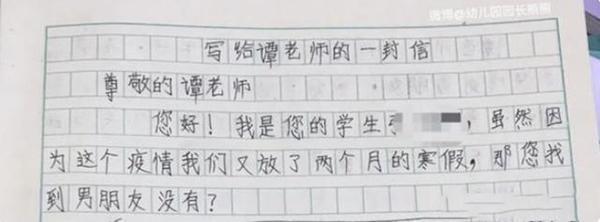 微博@幼儿园园长熊熊
写给谭老师的一封信
尊敬的谭老师
您好！我是您的学生，虽然因
为这个疫情我们又放了两个月的寒假，那您找
到男朋友没有？